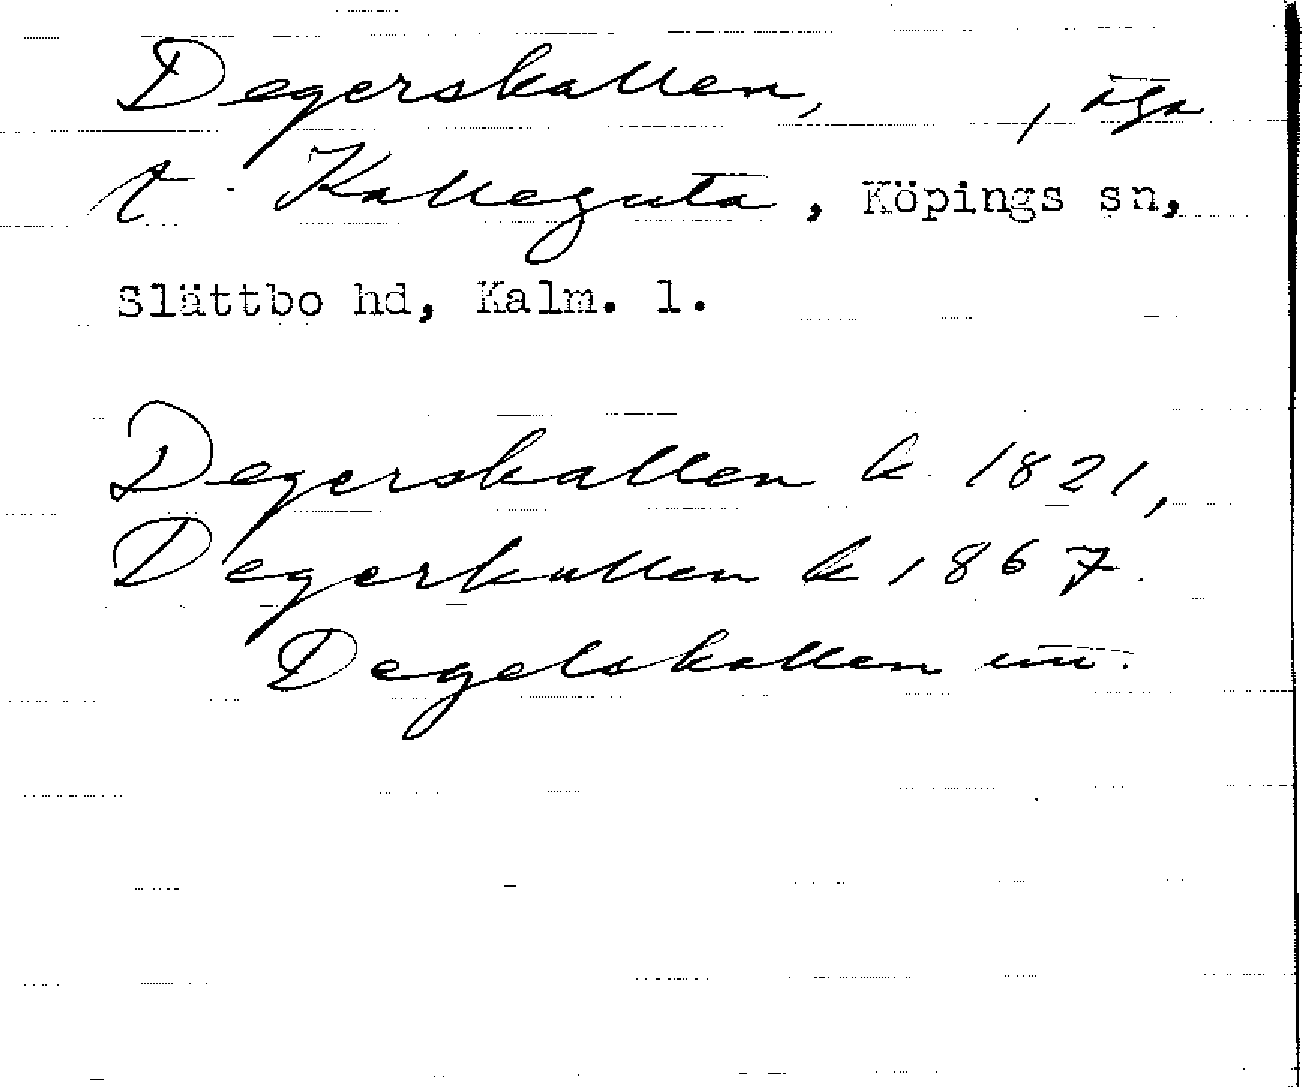 Degerskallen, , äga
t. Kalleguta, Köpings sn,
Slättbo hd, Kalm. l.
Degerskallen k 1821,
Degerkullen k 1867.
Degelskallen un.